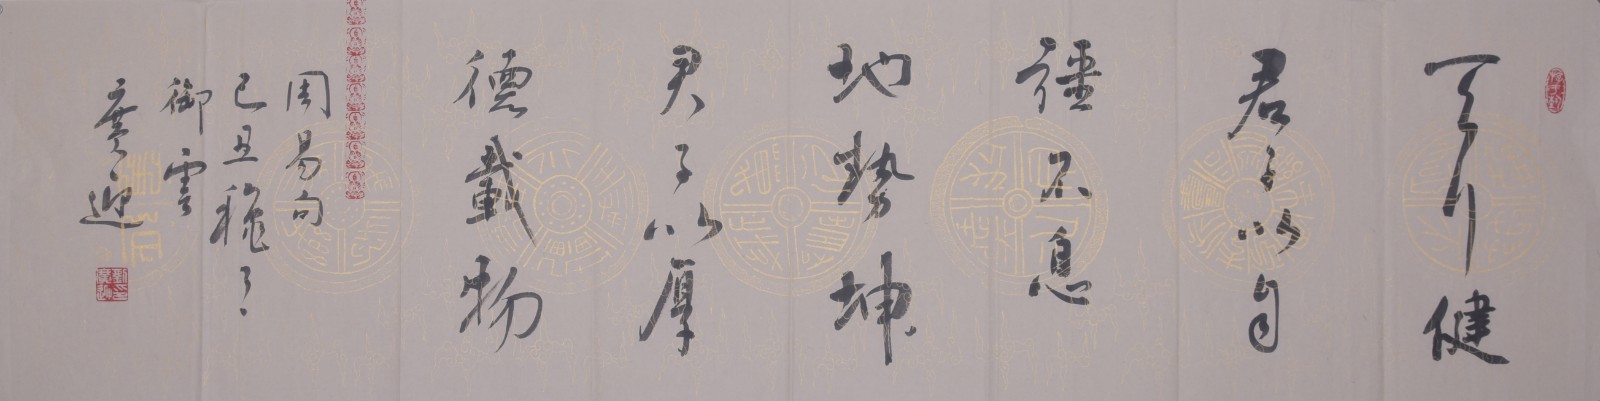 天行健
君子以自
彊不息
地勢坤
君子以厚
德載物
周易句
己丑穐
御雲
迎